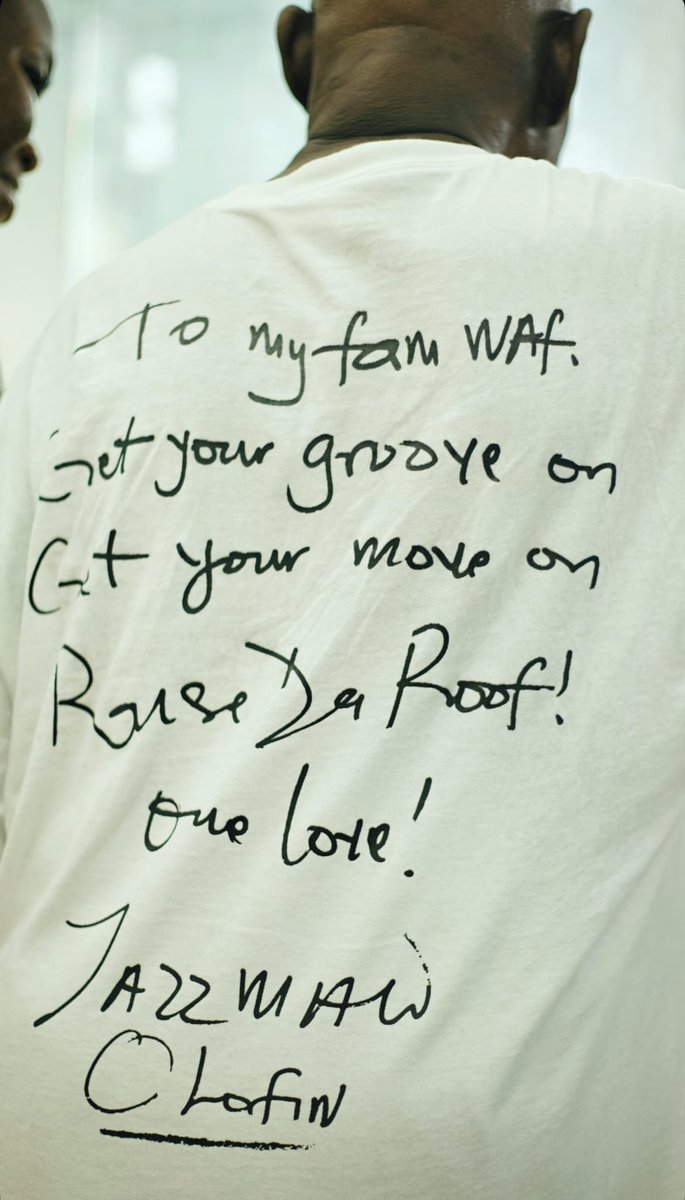 To my fam WAf.
Get your groove on
Get your move on
Raise Da Roof!
one love!
JAZZMAN
Olofin